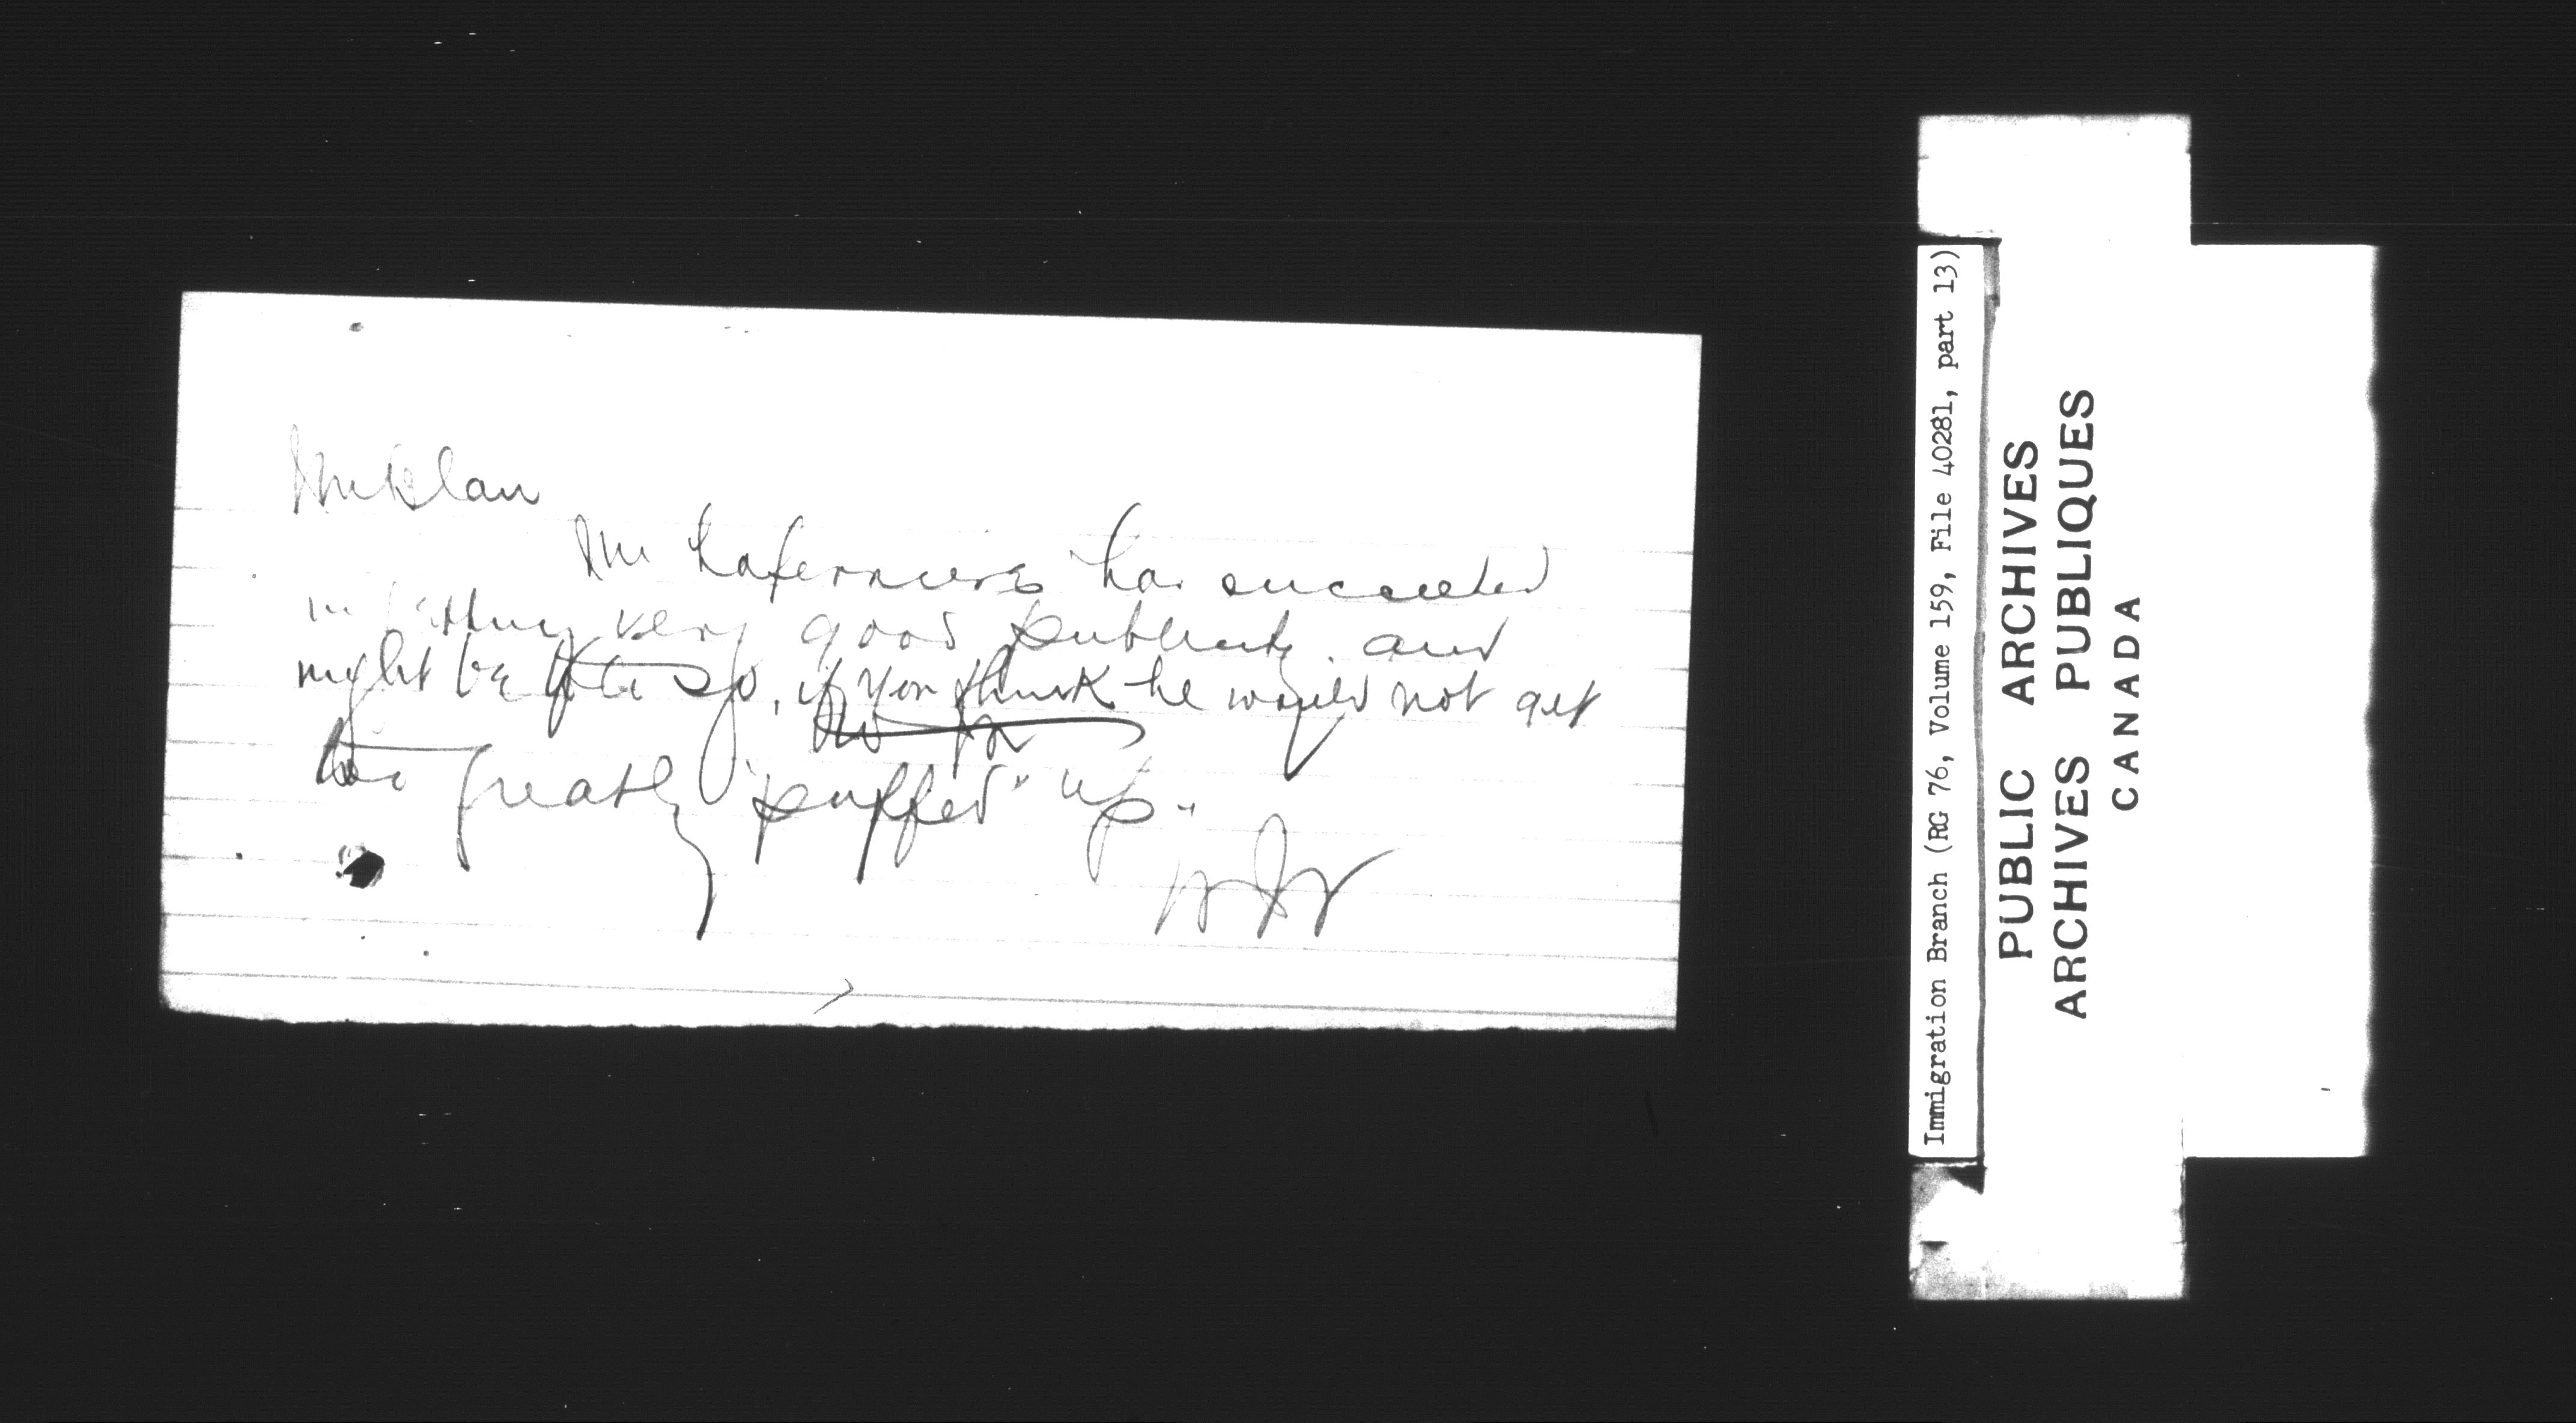 Mr Blair
Mr Laferriere has succeeded
in getting very good publicity and
might be told so, if you think he would not get
too greatly "puffed" up.
WJW
Immigration Branch (RG 76, Volume 159, File 40281, part 13)
PUBLIC ARCHIVES
ARCHIVES PUBLIQUES
CANADA